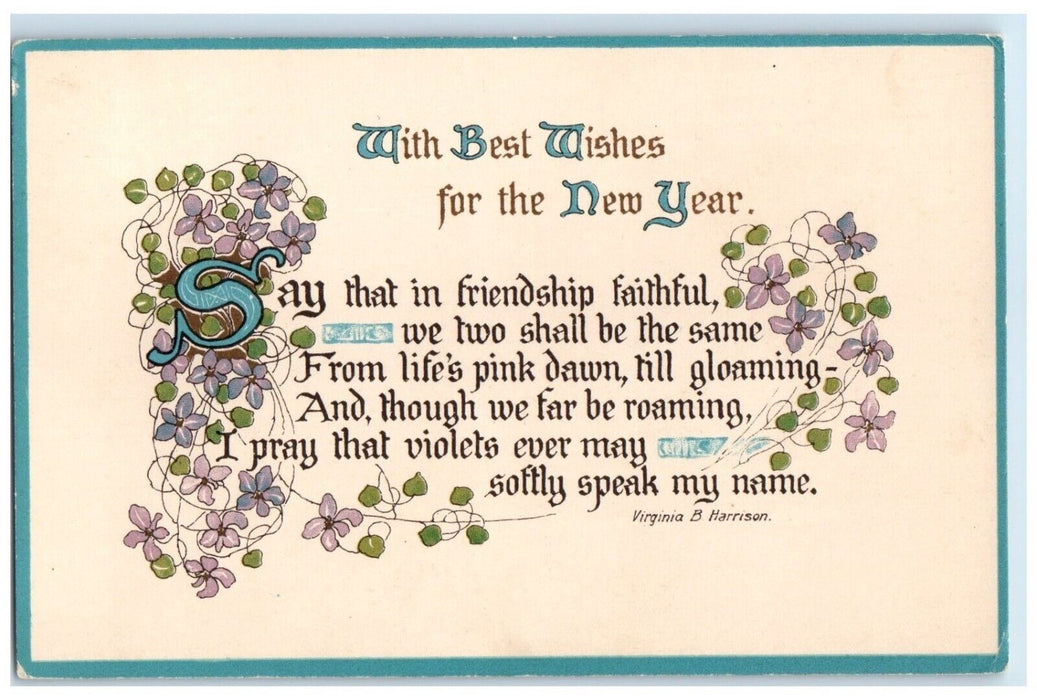 With Best Wishes
for the New Year.
Say that in friendship faithful,
we two shall be the same
From life's pink dawn, till gloaming-
And, though we far be roaming,
I pray that violets ever may
softly speak my name.
Virginia B Harrison.